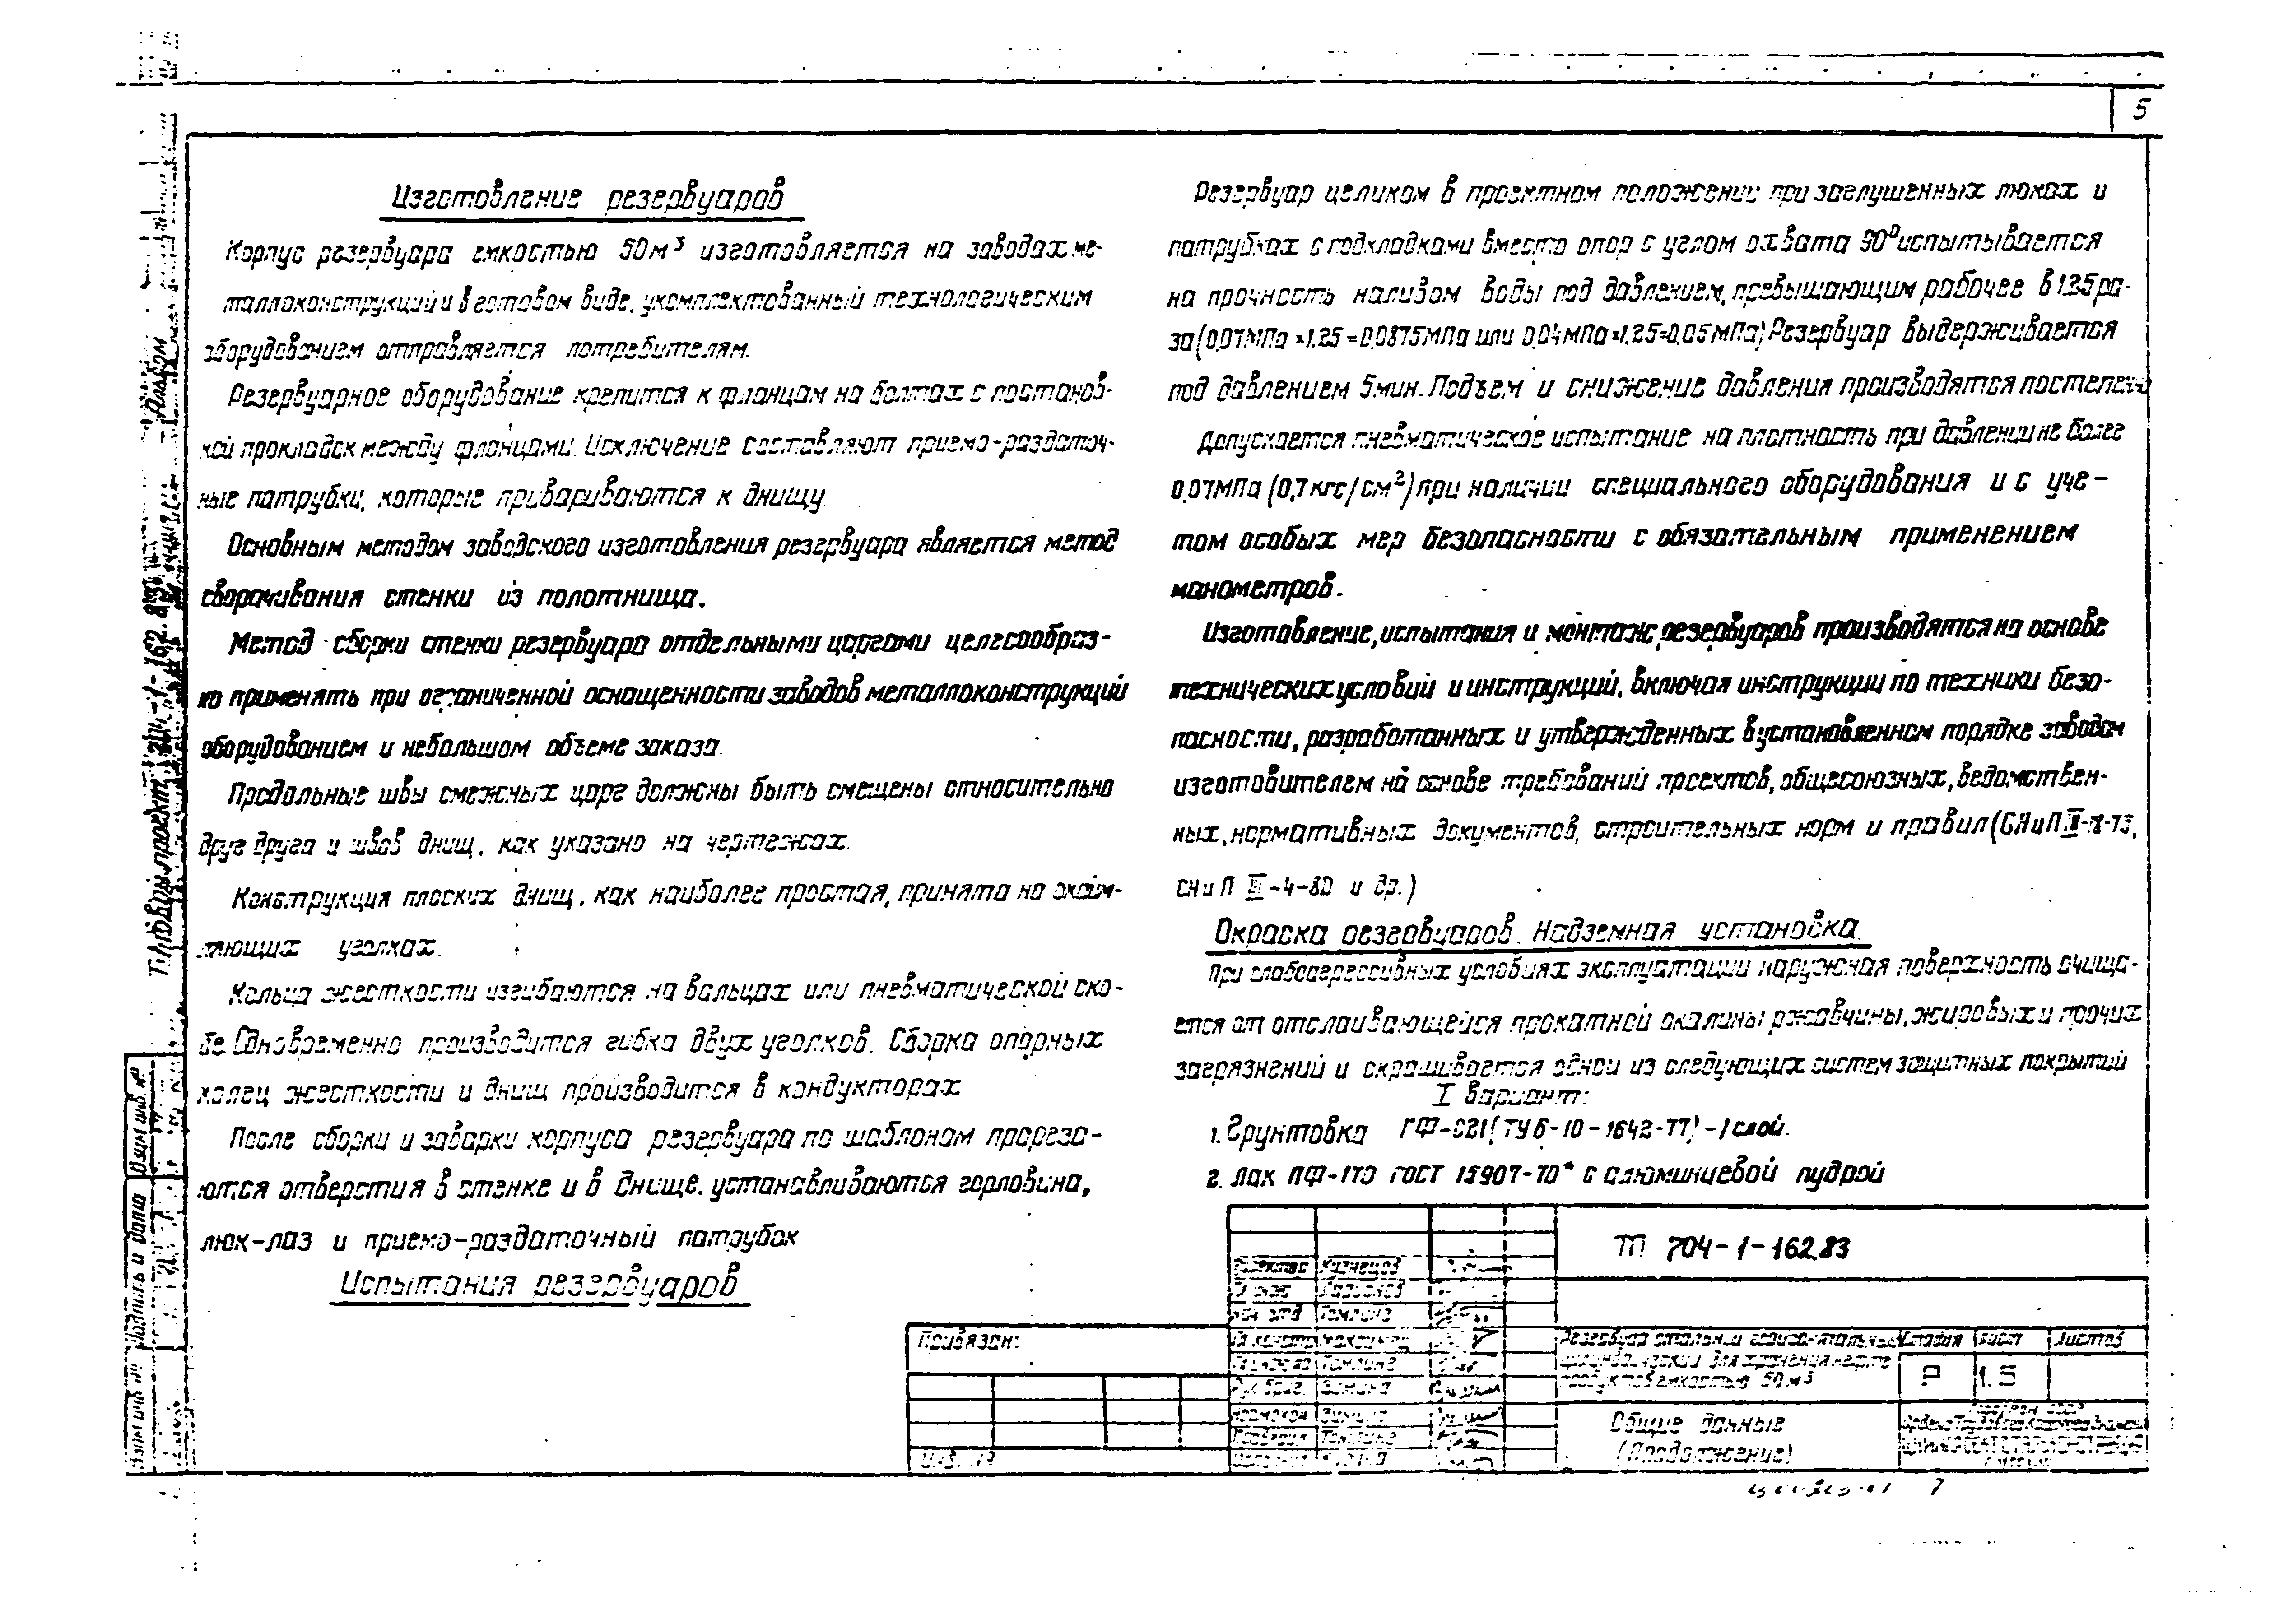 5
Изготовление резервуаров
Корпус резервуара емкостью 50 м³ изготовляется на заводах ме-
таллоконструкций и в готовом виде, укомплектованный технологическим
оборудованием отправляется потребителям.
Резервуарное оборудование крепится к фланцам на болтах с постанов-
кой прокладок между фланцами. Исключение составляют приемо-раздаточ-
ные патрубки, которые привариваются к днищу.
Основным методом заводского изготовления резервуара является метод
сворачивания стенки из полотнища.
Метод сборки стенки резервуара отдельными царгами целесообраз-
но применять при ограниченной оснащенности заводов металлоконструкций
оборудованием и небольшом объеме заказа.
Продольные швы смежных царг должны быть смещены относительно
друг друга и швов днищ, как указано на чертежах.
Конструкция плоских днищ, как наиболее простая, принята на окайм-
ляющих уголках.
Кольца жесткости изгибаются на вальцах или пневматической ско-
бе. Одновременно производится гибка двух уголков. Сборка опорных
колец жесткости и днищ производится в кондукторах
После сборки и заварки корпуса резервуара по шаблонам прореза-
ются отверстия в стенке и в днище, устанавливаются горловина,
люк-лаз и приемо-раздаточный патрубок
Испытания резервуаров
Резервуар целиком в проектном положении при заглушенных люках и
патрубках с подкладками вместо опор с углом охвата 90° испытывается
на прочность наливом воды под давлением, превышающим рабочее в 1.25 ра-
за (0,07МПа×1.25=0.0875МПа или 0,04МПа×1.25=0.05МПа) Резервуар выдерживается
под давлением 5мин. Подъем и снижение давления производятся постепенно
Допускается пневматическое испытание на плотность при давлении не более
0,07МПа (0,7кгс/см²) при наличии специального оборудования и с уче-
том особых мер безопасности с обязательным применением
манометров.
Изготовление, испытания и монтаж резервуаров производятся на основе
технических условий и инструкций, включая инструкции по техники безо-
пасности, разработанных и утвержденных в установленном порядке заводом
изготовителем на основе требований проектов, общесоюзных, ведомствен-
ных, нормативных документов, строительных норм и правил (СНиП
СНиП III-4-80 и др.)
Окраска резервуаров. Надземная установка.
При слабоагрессивных условиях эксплуатации наружная поверхность очища-
ется от отслаивающейся прокатной окалины, ржавчины, жировых и прочих
загрязнений и окрашивается одной из следующих систем защитных покрытий
I вариант:
1. Грунтовка ГФ-021 (ТУ6-10-1642-77) - 1 слой.
2. Лак ПФ-170 ГОСТ 15907-70* с алюминиевой пудрой
ТП 704-1-162.83
Привязан:
Инв. №
Резервуар стальной горизонтальный
цилиндрический для хранения нефте
продуктов емкостью 50м³
Стадия Лист Листов
Р 1.5
Общие данные
(Продолжение)
Типовой проект 704-1-162.83 Альбом
Взам инв. №
Подпись и дата
7